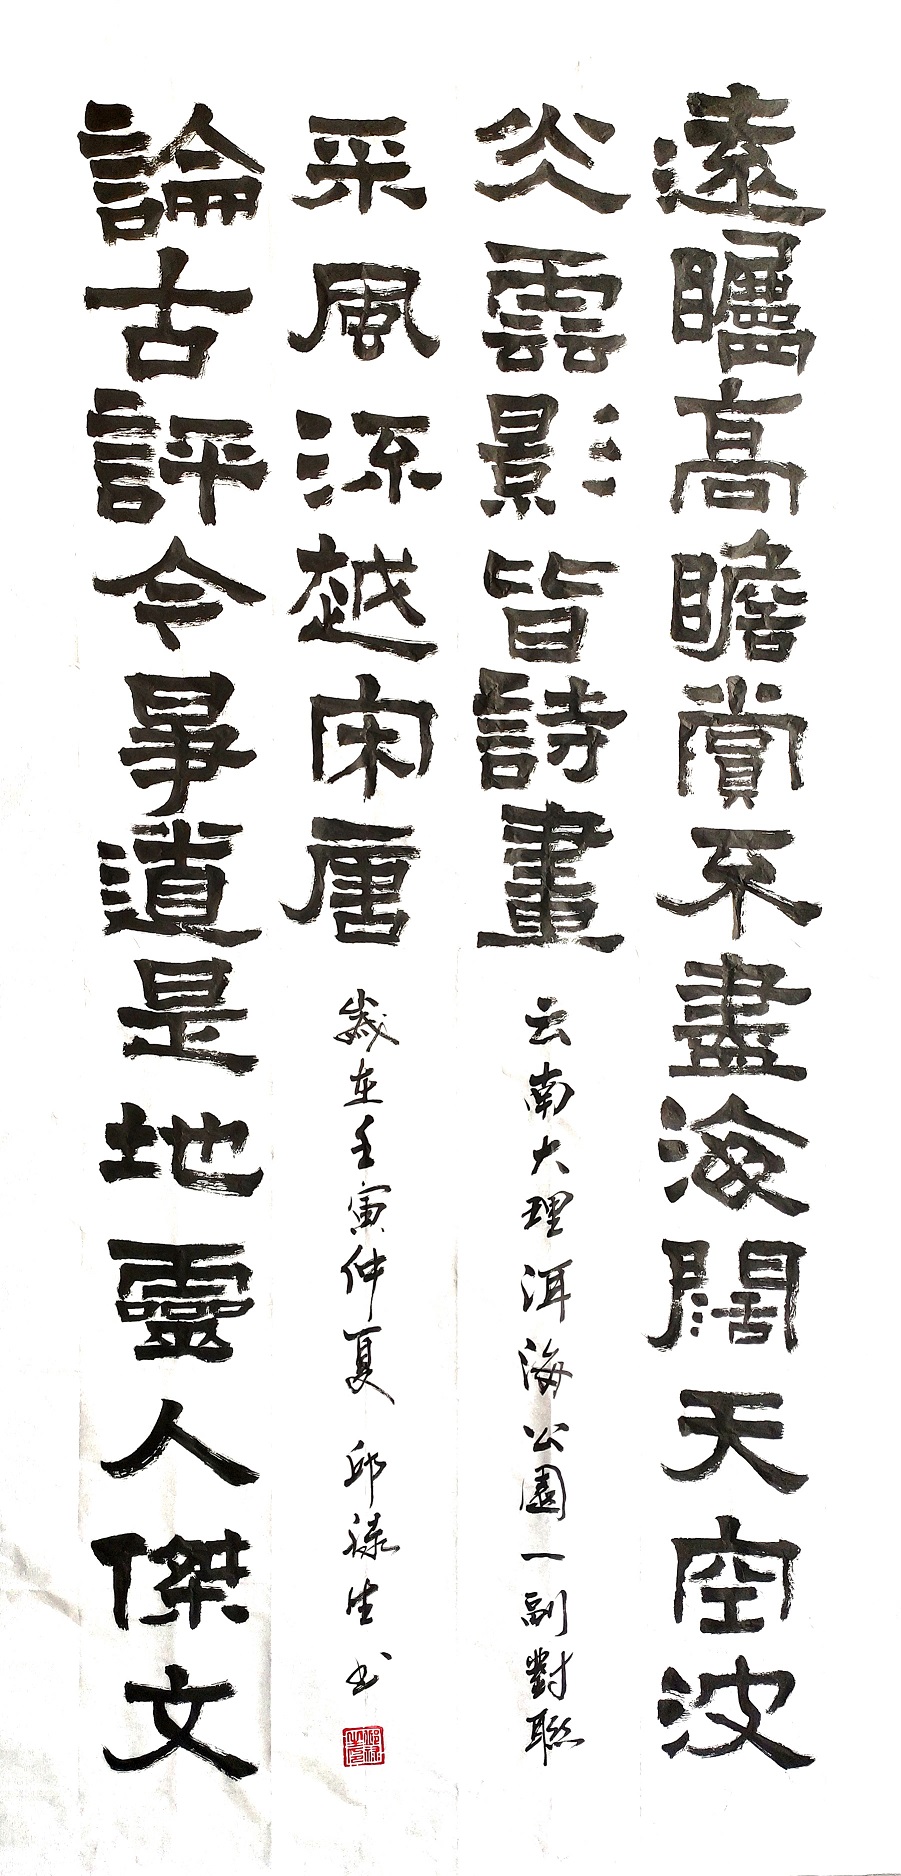 遠矚高瞻賞不盡海闊天空波
光雲影皆詩畫
云南大理洱海公園一副對聯
論古評今爭道是地靈人傑文
采風流越宋唐
歲在壬寅仲夏 邱祿生书